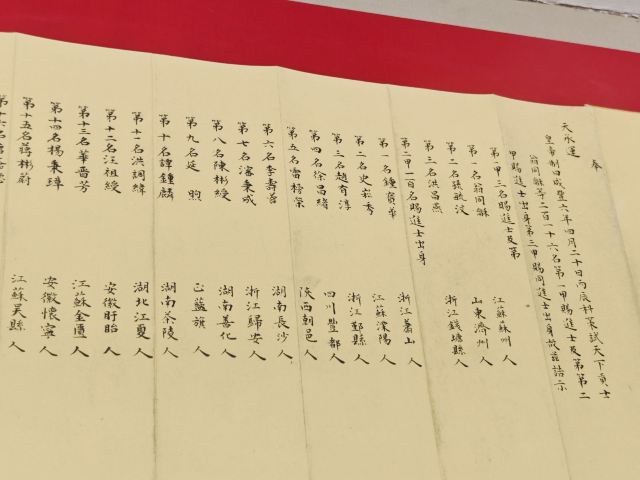 奉
天承運
皇帝制曰咸豐六年四月二十日丙辰科策試天下貢士
翁同龢等二百一十六名第一甲賜進士及第第二
甲賜進士出身第三甲賜同進士出身故茲誥示
第一甲三名賜進士及第
第一名翁同龢 江蘇蘇州人
第二名孫毓汶 山東濟州人
第三名洪昌燕 浙江錢塘縣人
第二甲一百名賜進士出身
第一名鍾寶華 浙江蕭山人
第二名史崧秀 江蘇溧陽人
第三名趙有淳 浙江鄞縣人
第四名徐昌緒 四川豐都人
第五名雷榜榮 陝西朝邑人
第六名李壽蓉 湖南長沙人
第七名潘秉成 浙江歸安人
第八名陳彬綬 湖南善化人
第九名延煦 正藍旗人
第十名譚鍾麟 湖南茶陵人
第十一名洪調緯 湖北江夏人
第十二名汪祖綬 安徽盱眙人
第十三名華晉芳 江蘇金匱人
第十四名楊秉璋 安徽懷寧人
第十五名蔣彬蔚 江蘇吳縣人
第十六名